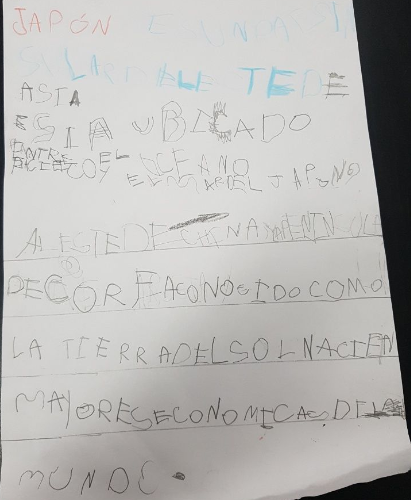 JAPÓN E UN PAIS I
SULAR DEL E TE DE
ASIA
ESTA UBICADO
ENTRE EL OCEANO
PACIFICO Y EL MAR DEL JAPONO
AL ESTE DE CHINA
DE COREA CONOCIDO COMO
LA TIERRA DEL SOL NACIEN
MAYORES ECONOMICAS DE
MUNDO.